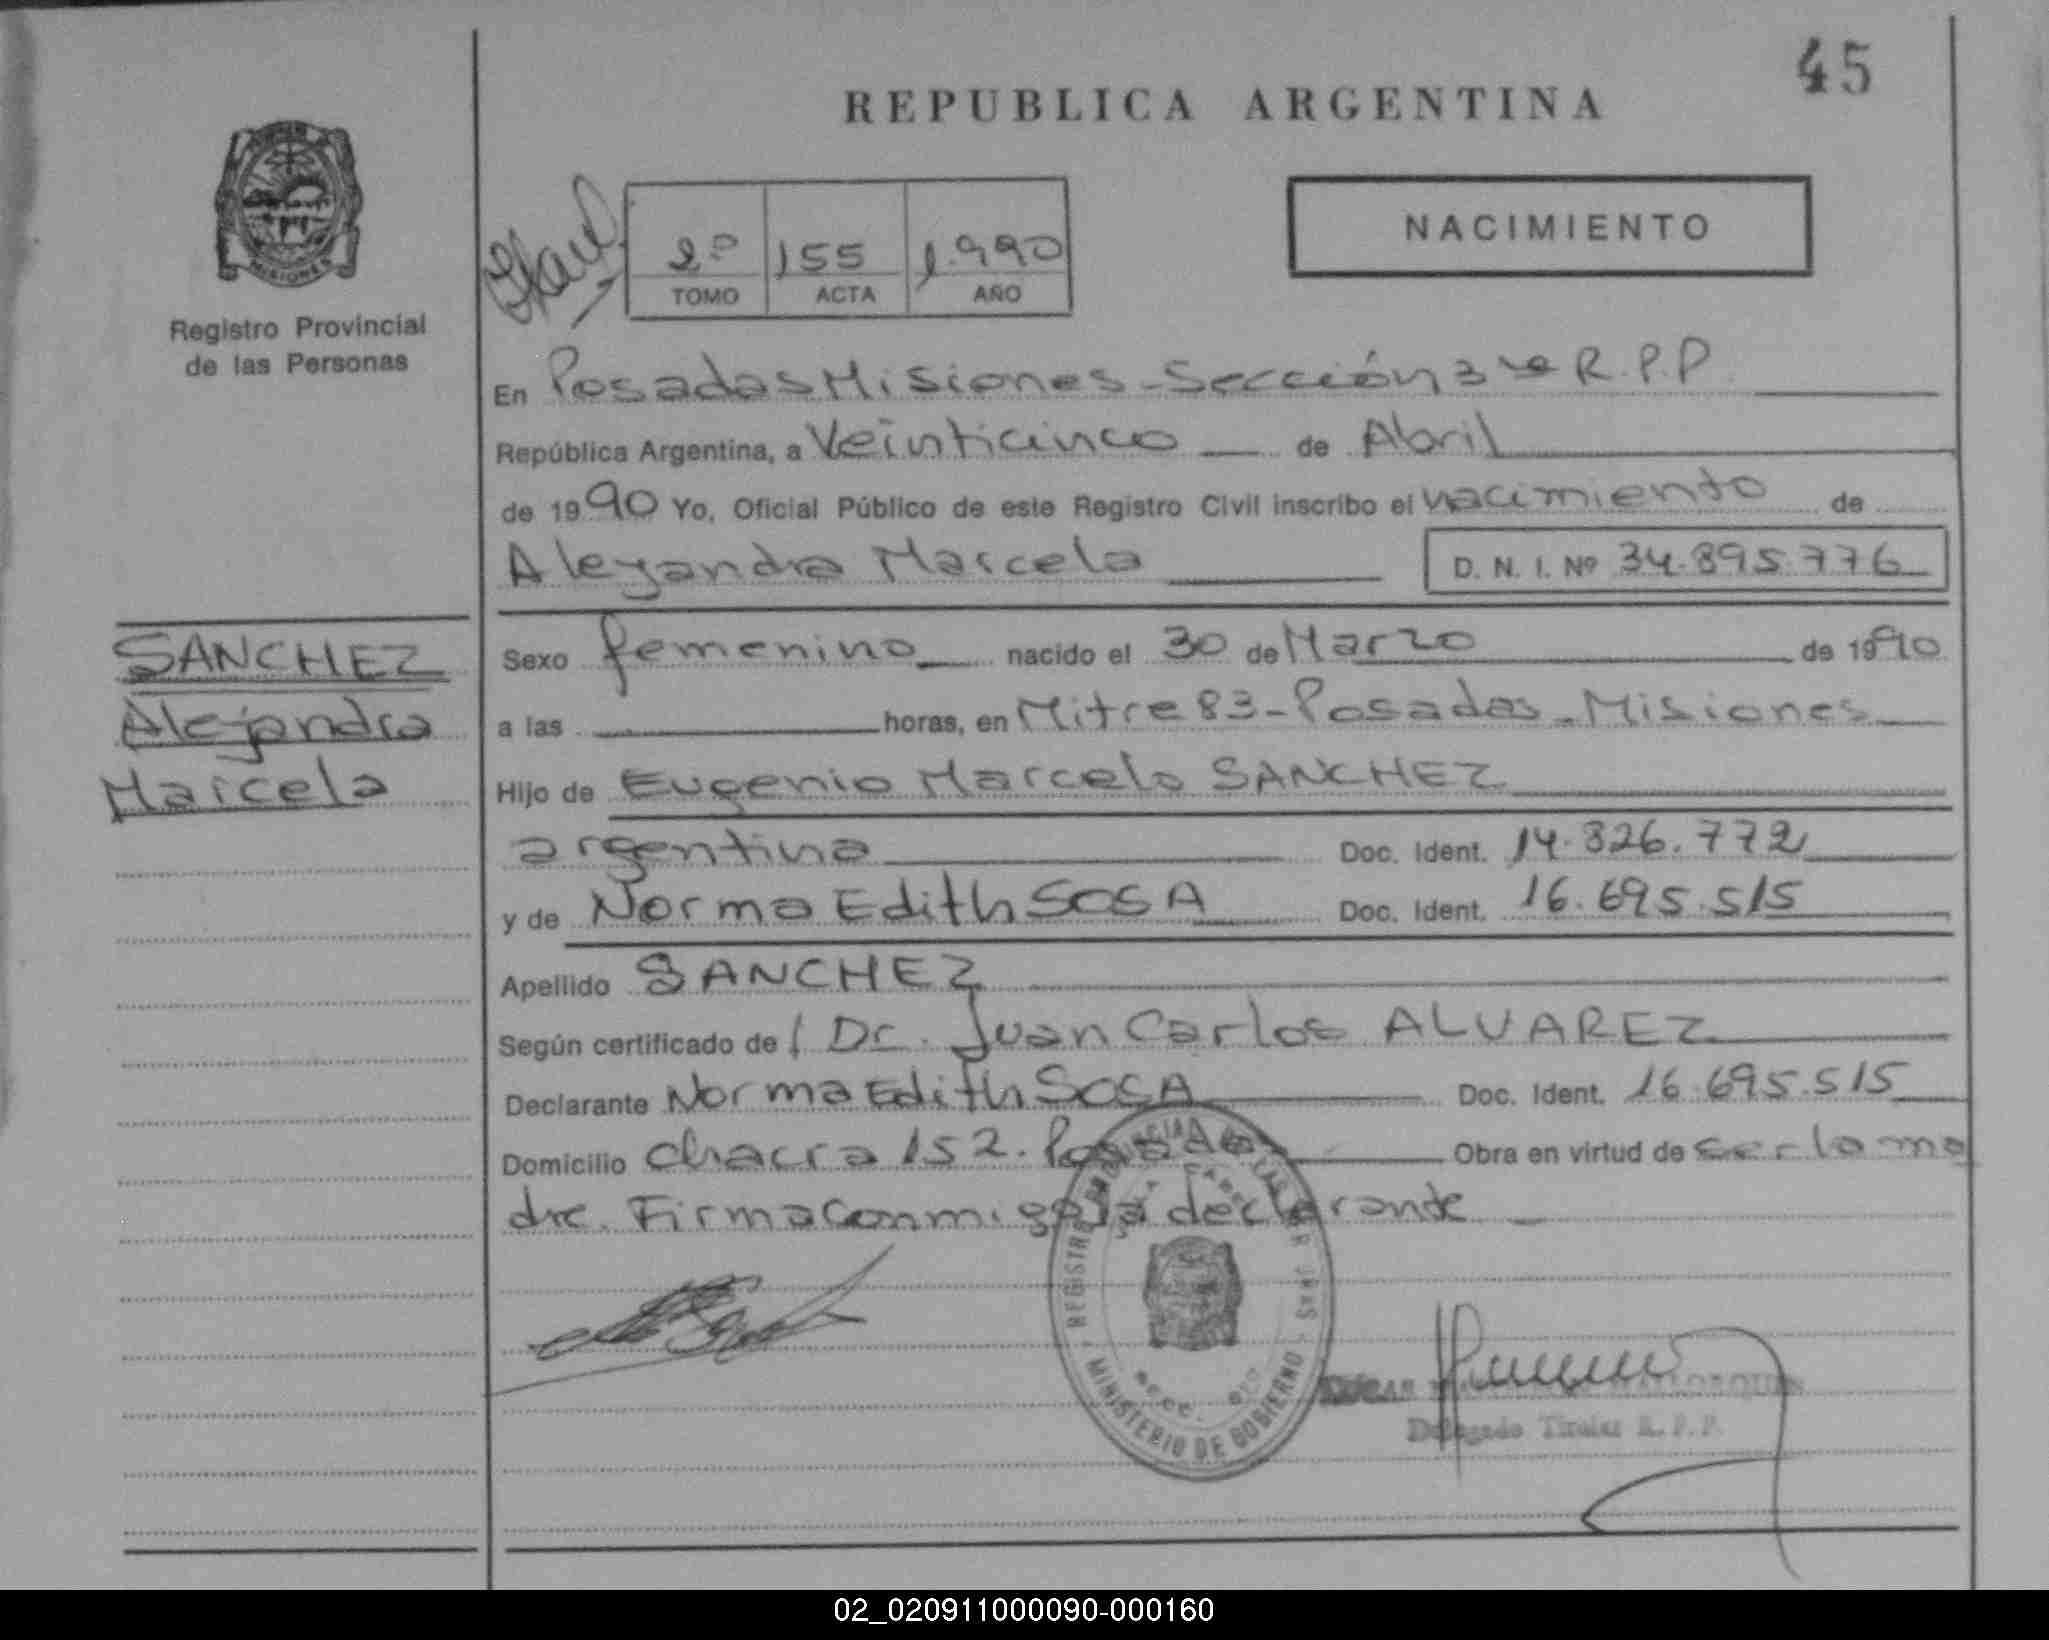 45
REPUBLICA ARGENTINA
MISIONES
Registro Provincial
de las Personas
2º 155 1.990
TOMO ACTA AÑO
NACIMIENTO
En Posadas Misiones - Sección 3ra R.P.P.
República Argentina, a Veinticinco de Abril
de 1990 Yo, Oficial Público de este Registro Civil inscribo el nacimiento de
Aleyandra Marcela D. N. I. Nº 34.895.776
SANCHEZ
Alejandra
Marcela
Sexo femenino nacido el 30 de Marzo de 1990
a las horas, en Mitre 83 - Posadas - Misiones
Hijo de Eugenio Marcelo SANCHEZ
argentina Doc. Ident. 14.826.772
y de Norma Edith SOSA Doc. Ident. 16.695.515
Apellido SANCHEZ
Según certificado de Dr. Juan Carlos ALVAREZ
Declarante Norma Edith SOSA Doc. Ident. 16.695.515
Domicilio chacra 152. Posadas Obra en virtud de ser la ma
dre. Firma Conmigo la declarante
REGISTRO PROVINCIAL DE LAS PERSONAS
MINISTERIO DE GOBIERNO
Delegado Titular R.P.P.
02_020911000090-000160